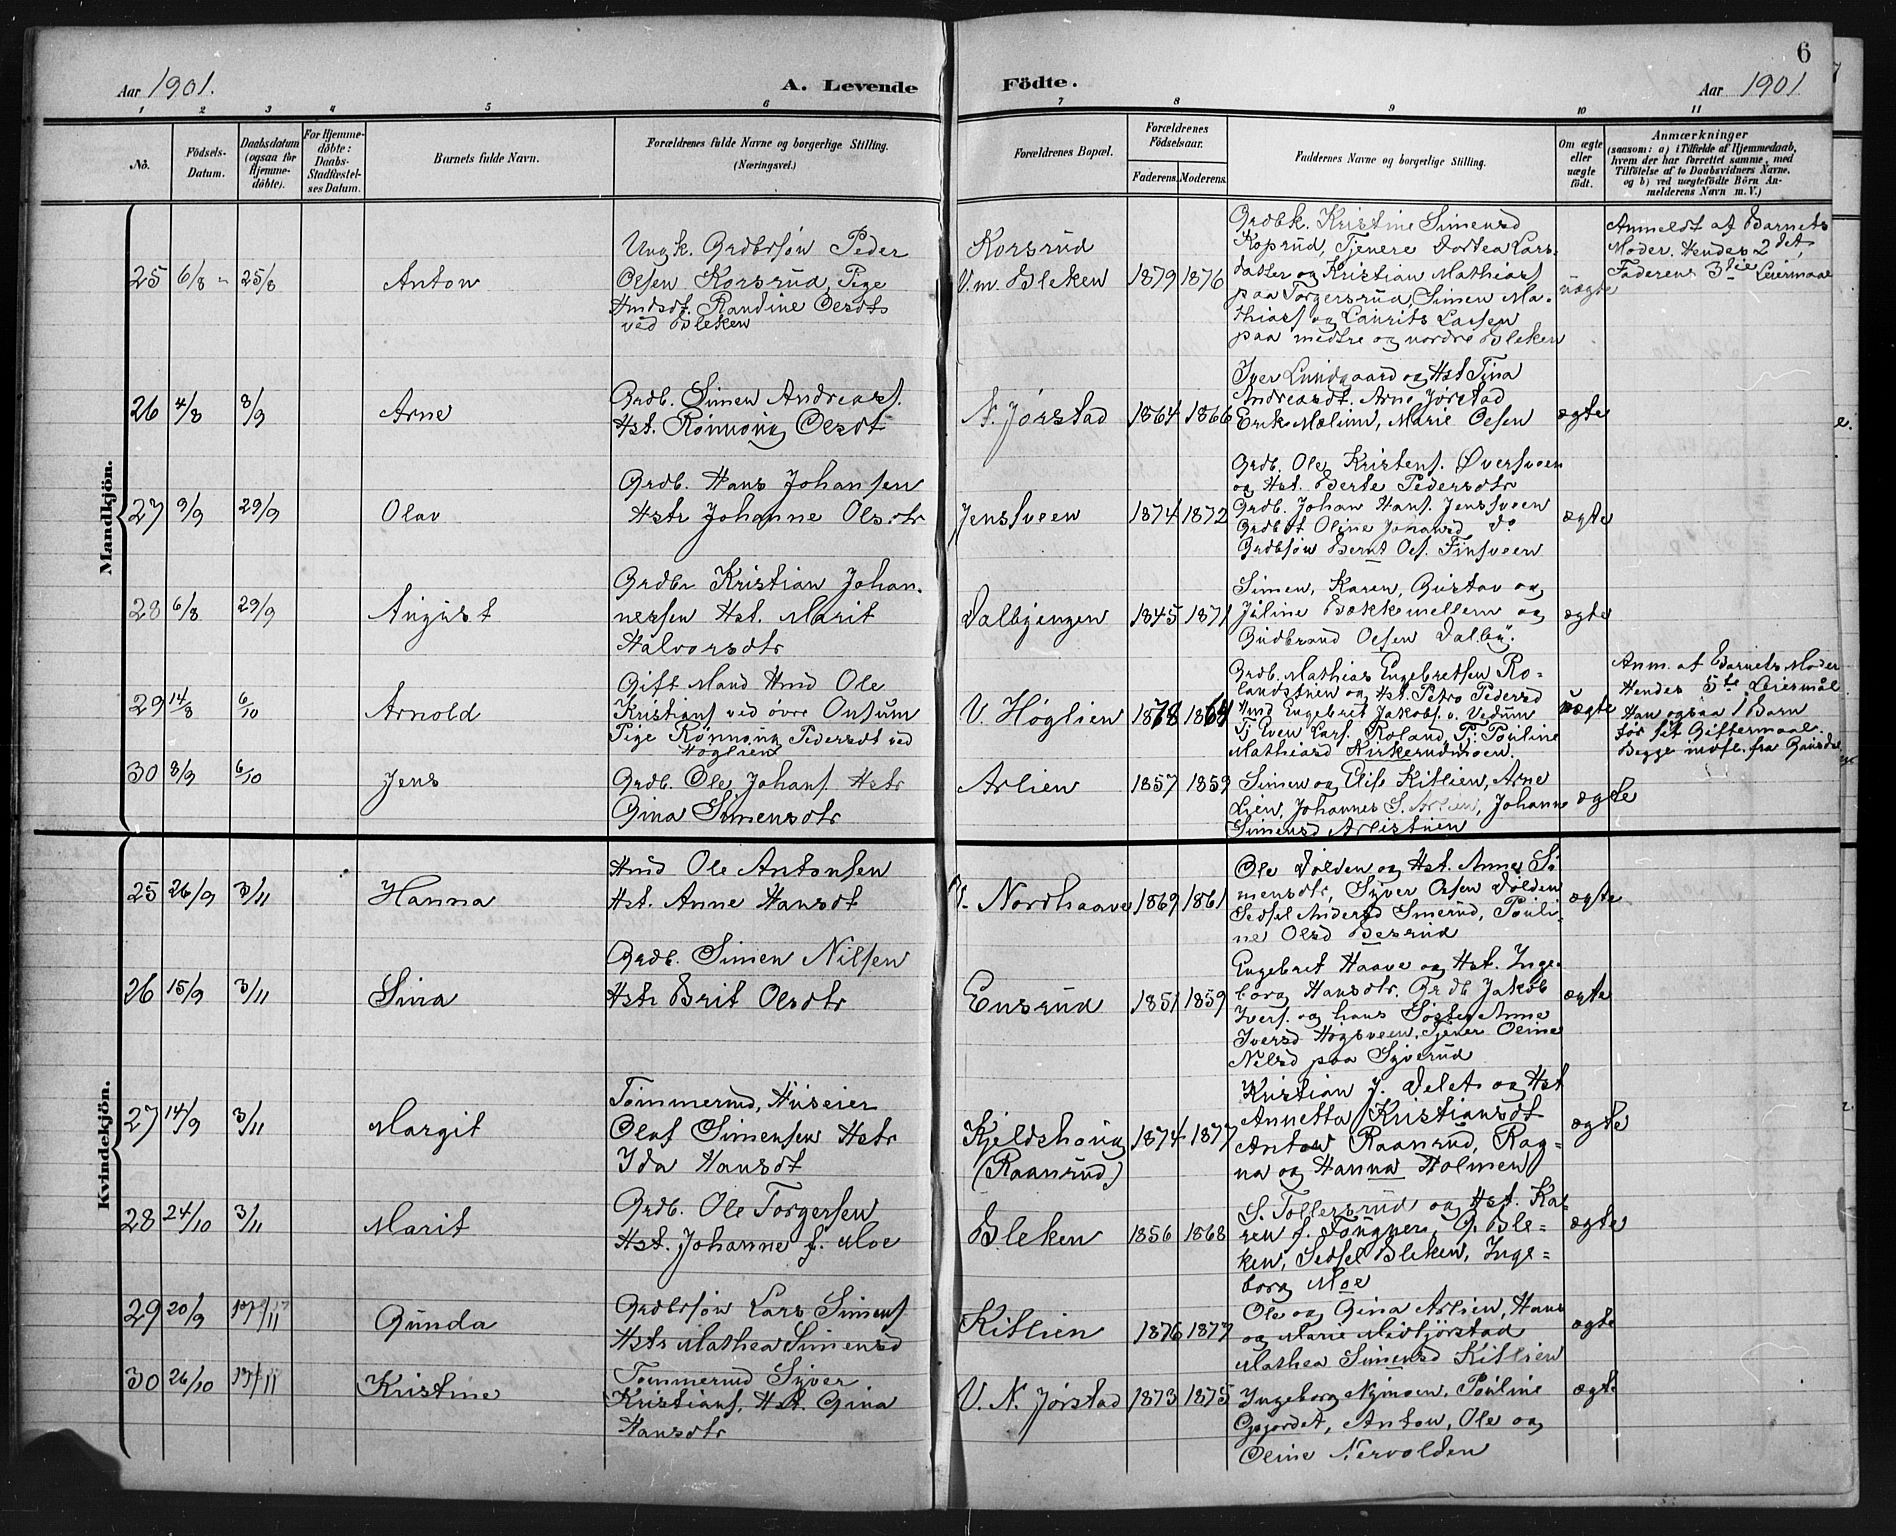 6
Aar 1901.
A. Levende Födte.
Aar 1901
1 2 3 4 5 6 7 8 9 10 11
No.
Födsels-Datum.
Daabsdatum (ogsaa for Hjemme-döbte).
For Hjemme-döbte: Daabs-Stadfæstel-ses Datum.
Barnets fulde Navn.
Forældrenes fulde Navne og borgerlige Stilling.
(Næringsvei.)
Forældrenes Bopæl.
Forældrenes Födselsaar.
Faderens. Moderens.
Faddernes Navne og borgerlige Stilling.
Om ægte eller uægte födt.
Anmærkninger
(saasom: a) i Tilfælde af Hjemmedaab,
hvem der har forrettet samme, med
Tilföielse af to Daabsvidners Navne,
og b) ved uægtefödte Börn An-
melderens Navn m. V.)
Mandkjön.
25 6/8 25/8 Anton
Ungk. Grdbrsøn Peder
Olsen Korsrud, Pige
Hmdsdt. Randine Olsdtr
ved Bleken
Korsrud
V. m. Bleken 1879 1876
Grdbk. Kristine Simensd
Koprud, Tjenere Dortea Lars-
datter og Kristian Mathiasf
paa Torgersrud, Simen Ma-
thiasf og Laurits Larsen
paa medtre og nordre Bleken
uægte
Anmeldt af Barnets
Moder. Hendes 2det,
Faderens 3die Leiermaal
26 4/8 8/9 Arne
Grdb. Simen Andreasf.
Hst. Rønnaug Olsdt
N. Jørstad 1864 1866
Iver Lundgaard og Hst Tina
Andreasdt. Arne Jørstad
Erik Mælum, Marie Olsen
ægte
27 9/9 29/9 Olav
Grdb. Hans Johansen
Hstr Johanne Olsdtr
Jenssveen 1874 1872
Grdb. Ole Kristenf. Øversveen
og Hst. Berte Pedersdtr
Grdb. Johan Hansf. Jenssveen
Grdbdt Oline Johansd do
Grdbsøn Bernt Olsf. Finsveen
ægte
28 6/8 29/9 August
Grdbr Kristian Johan-
nessen Hst. Marit
Halvorsdtr
Dalbyengen 1845 1871
Simen, Karen, Gustav og
Juline Bækkemellem og
Gudbrand Olsen Dalby.
ægte
29 14/8 6/10 Arnold
Gift Mand Hmd Ole
Kristiansf ved øvre Onsum
Pige Rønnaug Pedersdt ved
Høglien
V. Høglien 1868 1864
Grdb. Mathias Engebretsen Ro-
landstuen og Hst. Petra Pedersd
Hmd Engebret Jakobf. v. Vedum
Tj Even Larsf. Roland, Pj. Pouline
Mathiasd Kirkerudmoen.
uægte
Anm. af Barnets Moder
Hendes 5te Leiermål
Han ogsaa 1 Barn
før sit Giftermaal.
Begge indfl. fra Gausdal
30 8/9 6/10 Jens
Grdb. Ole Johansf. Hstr
Gina Simensdtr
Arlien 1857 1859
Simen og Elise Kitlien, Arne
Lien, Johannes S. Arlien, Johanne
Simensd Arlistuen
ægte
Kvindekjön.
25 26/9 3/11 Hanna
Hmd Ole Antonsen
Hst. Anne Hansdt
V. Nordhaave 1869 1861
Ole Dolden og Hst. Anne Si
mensdtr, Syver Olsen Dolden
Sedsel Andersd Smerud, Pouli-
ne Olsd Besrud
ægte
26 15/9 3/11 Sina
Grdb. Simen Nilsen
Hstr Brit Olsdtr
Ensrud 1851 1859
Engebret Haave og Hst. Inge-
borg Hansdtr. Grdb Jakob
Iversf. og hans Søster Anne
Iversd Høgsveen, Tjener Oline
Nilsd paa Syverud
ægte
27 14/9 3/11 Margit
Tømmermd, Huseier
Olaf Simensen Hstr
Ida Hansdt
Kjeldshaug
(Raanrud) 1874 1877
Kristian J. Delet og Hst
Annetta Kristiansdt
Anton Raanrud, Rag-
na og Hanna Holmen
ægte
28 24/10 3/11 Marit
Grdb. Ole Torgersen
Hst. Johanne f. Moe
Bleken 1856 1868
S. Tollersrud og Hst. Ka-
ren f. Fougner, G. Ble-
ken, Sedsel Bleken, Inge-
borg Moe
ægte
29 20/9 17/11 Gunda
Grdbrsøn Lars Simensf
Hstr Mathea Simensd
Kitlien 1876 1877
Ole og Gina Arlien, Hans
og Marie Midtjørstad
Mathea Simensd Kitlien
ægte
30 26/10 17/11 Kristine
Tømmermd Syver
Kristiansf, Hst. Gina
Hansdtr
V. N. Jørstad 1873 1875
Ingeborg Nymoen, Pouline
Opjordet, Anton, Ole og
Oline Nervolden
ægte